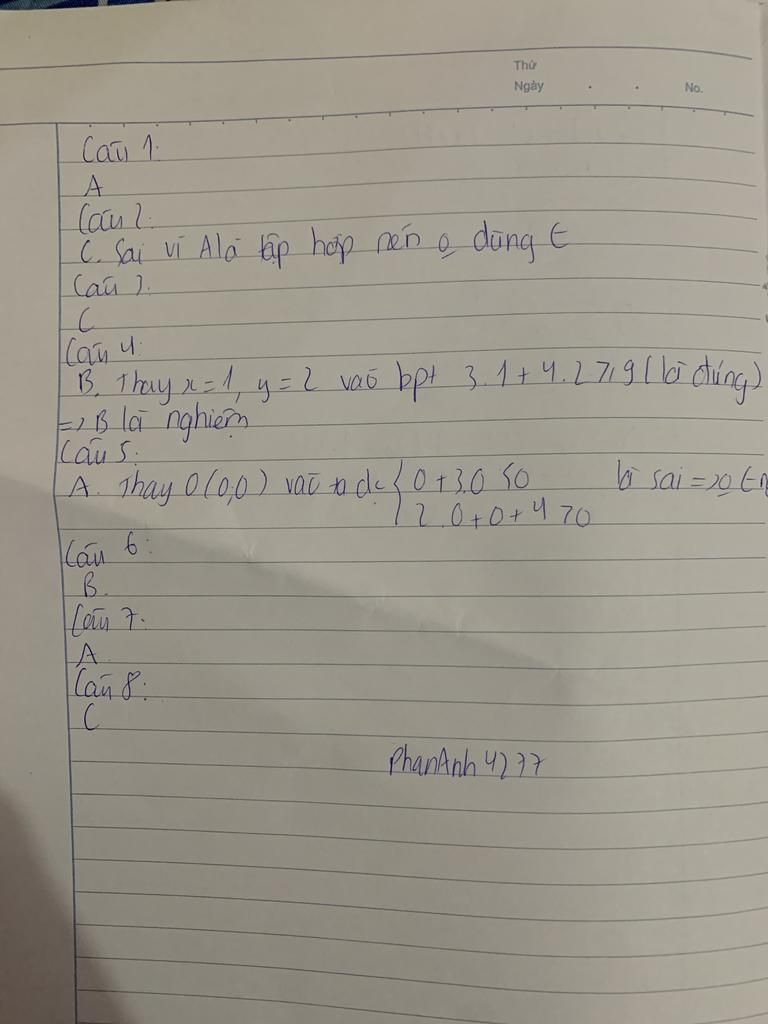 Thứ
Ngày . . No.
Câu 1:
A
Câu 2:
C. Sai vì A là tập hợp nên o dùng ∈
Câu 3.
C
Câu 4:
B. Thay x=1, y=2 vào bpt 3.1+4.2 ≥ 9 (là đúng)
=> B là nghiệm
Câu 5:
A. Thay O(0,0) vào ta dc { 0+3.0 ≤0 là sai => o
2.0+0+4 >0
Câu 6:
B.
Câu 7.
A
Câu 8:
C
PhanAnh4277